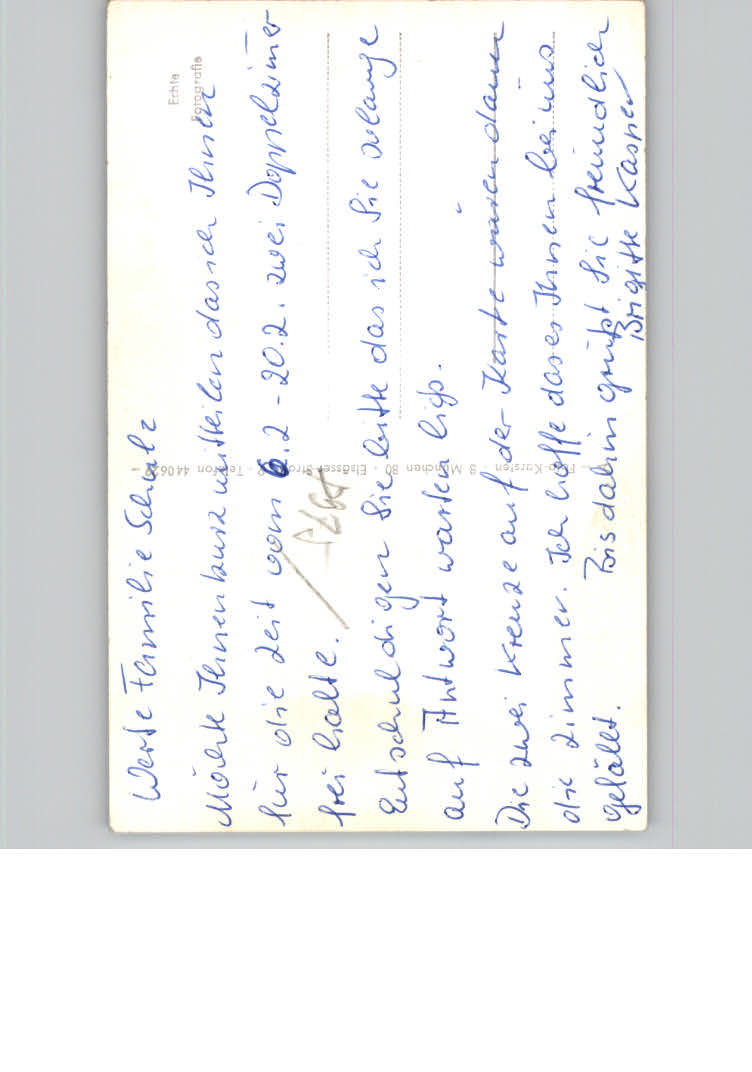 Werte Familie Schulz
Möchte Ihnen kurz mitteilen das ich Ihnen
für die Zeit vom 6.2 - 20.2. zwei Doppelzimer
frei halte.
Entschuldigen Sie bitte das ich Sie solange
auf Antwort warten ließ.
Die zwei Kreuze auf der Karte wären dann
die Zimmer. Ich hoffe das es Ihnen bei uns
gefällt.
Bis dahin grüßt Sie freundlich
Brigitte Kasner
Echte
Fotografie
Foto-Karsten - 8 München 80 - Elsässer
- Telefon 44062